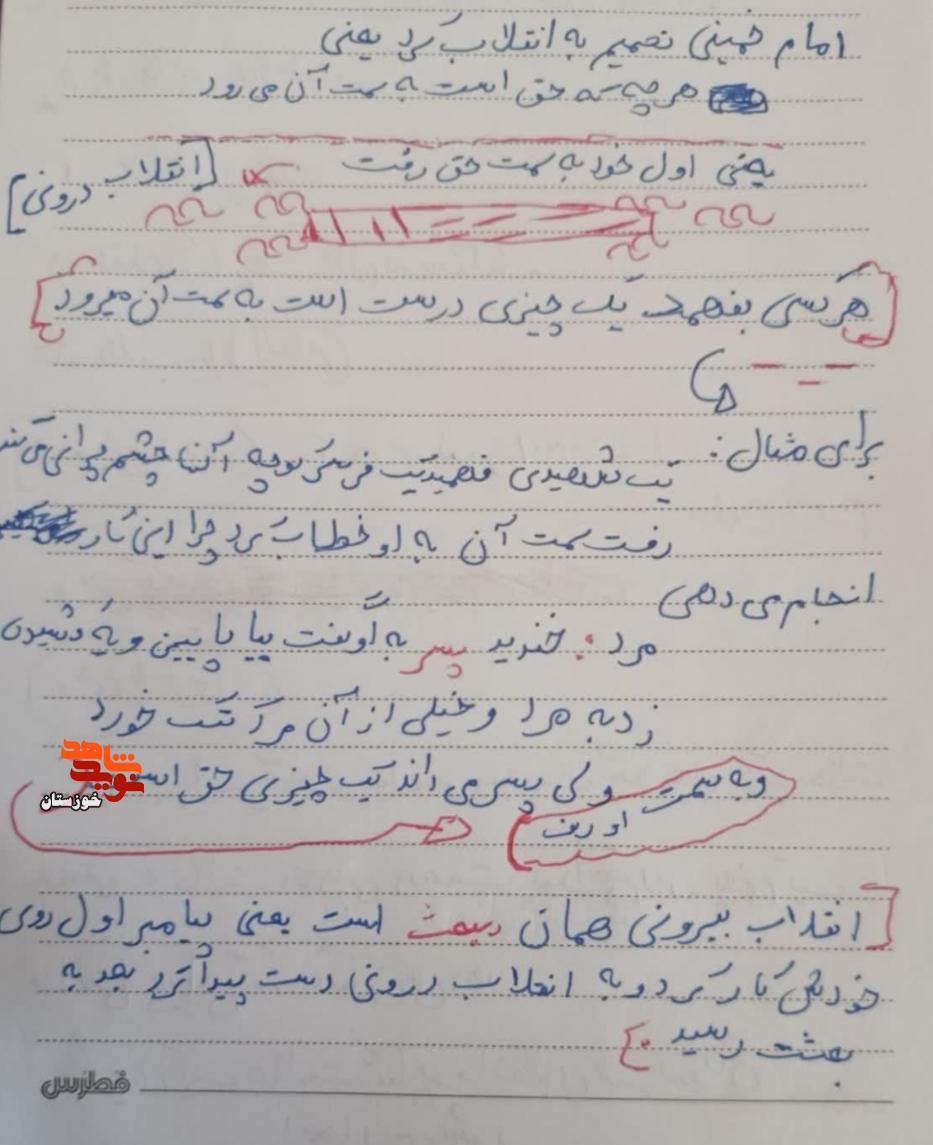 امام خمینی تصمیم به انقلاب کرد یعنی
هرچه که حق است به سمت آن می رود
یعنی اول خود به سمت حق رفت [انقلاب درونی]
[هر کسی بفهمد یک چیزی درست است به سمت آن میرود]
برای مثال:
یک شهیدی فهمید یک فر سر کوچه آنها چشم چرانی می کند
رفت سمت آن به او خطاب کرد چرا این کار
انجام می دهی
مرد: خندید پسر به او گفت بیا پایین و یه
زد به مرد و خیلی از آن مرد کتک خورد
ولی پسر می داند یک چیزی حق است
و به سمت او رفت
[انقلاب بیرونی همان بعثت است یعنی پیامبر اول روی
خودش کار کرد و به انقلاب درونی دست پیدا کرد بعد به
بعثت رسید.]
نوید شاهد
خوزستان